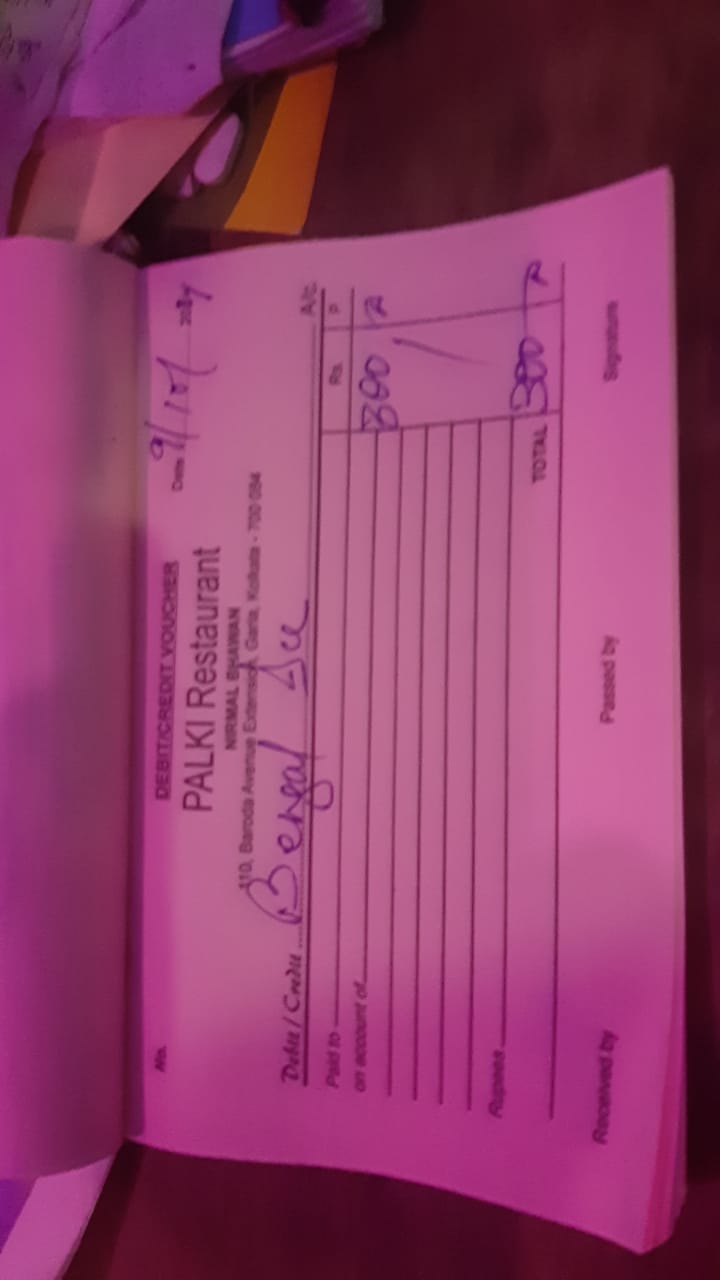 DEBIT/CREDIT VOUCHER
PALKI Restaurant
NIRMAL BHAWAN
110, Baroda Avenue Extension, Garia, Kolkata - 700 084
No.
Date 9/10/
Debit / Credit Bengal A/c.
Paid to Rs. P
on account of 300
Rupees
TOTAL 300
Received by Passed by Signature